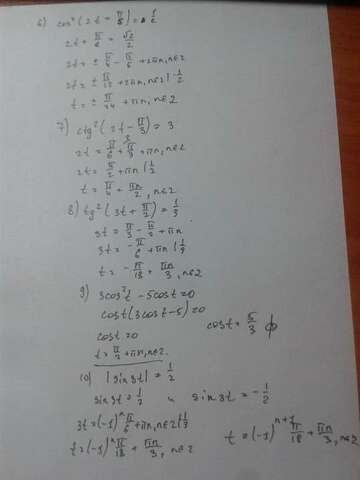 6) cos²(2t + π/6) = 1/2
2t + π/6 = √2/2
2t = ± π/4 - π/6 + 2πn, n∈Z
2t = ± π/12 + 2πn, n∈Z | · 1/2
t = ± π/24 + πn, n∈Z
7) ctg²(2t - π/3) = 3
2t = π/6 + π/3 + πn, n∈Z
2t = π/2 + πn | · 1/2
t = π/4 + πn/2, n∈Z
8) tg²(3t + π/2) = 1/3
3t = π/3 - π/2 + πn
3t = - π/6 + πn | · 1/3
t = - π/18 + πn/3, n∈Z
9) 3cos²t - 5cost = 0
cost(3cost - 5) = 0
cost = 0 cost = 5/3 ϕ
t = π/2 + πn, n∈Z.
10) |sin3t| = 1/2
sin3t = 1/2 и sin3t = - 1/2
3t = (-1)ⁿ π/6 + πn, n∈Z | · 1/3
t = (-1)ⁿ π/18 + πn/3, n∈Z t = (-1)ⁿ⁺¹ π/18 + πn/3, n∈Z